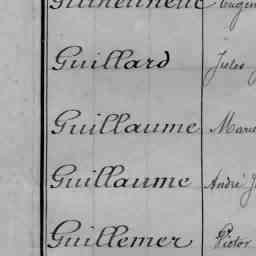 Guillard Jules
Guillaume Marie
Guillaume André J
Guillemer Victor